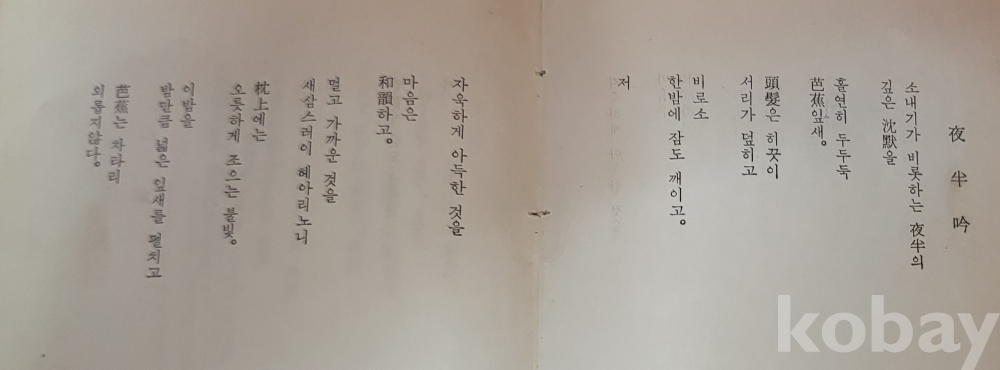 夜半吟
소내기가 비롯하는 夜半의
깊은 沈默을
홀연히 두두둑
芭蕉잎새。
頭髮은 히끗이
서리가 덮히고
비로소
한밤에 잠도 깨이고。
저
자욱하게 아득한 것을
마음은
和韻하고。
멀고 가까운 것을
새삼스러이 헤아리노니
枕上에는
오릇하게 조으는 불빛。
이밤을
밤만큼 넓은 잎새를 펼치고
芭蕉는 차타리
외롭지않다。
kobay